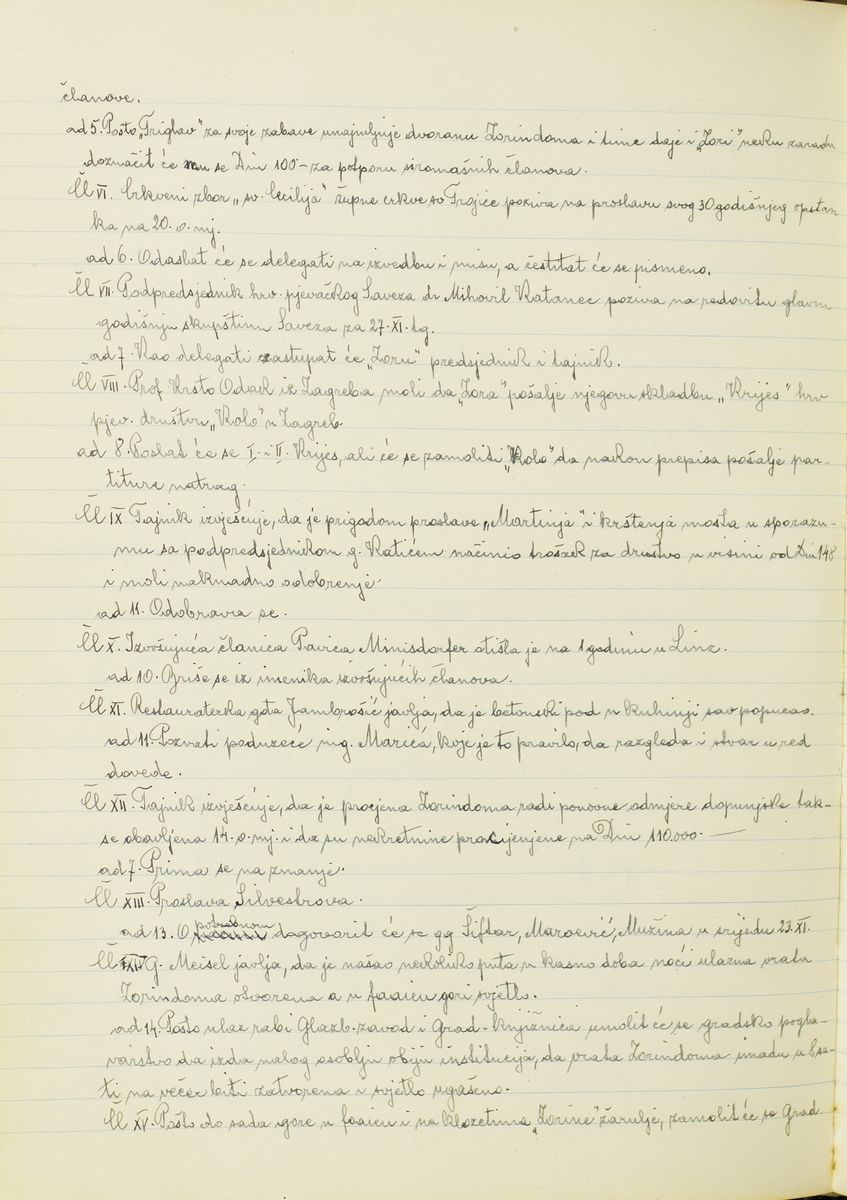 članove.
ad 5. Pošto „Triglav“ za svoje zabave unajmljuje dvoranu Zorindoma i time daje i „Zori“ neku zaradu
doznačit će mu se Din 100- za potporu siromašnih članova.
Čl VI. Crkveni zbor „sv. Cecilija“ župne crkve sv Trojice poziva na proslavu svog 30 godišnjeg opstan
ka na 20. o. mj.
ad 6. Odaslat će se delegati na izvedbu i misu, a čestitat će se pismeno.
Čl VII. Podpredsjednik hrv. pjevačkog Saveza dr Mihovil Katanec poziva na redovitu glavnu
godišnju skupštinu Saveza za 27. XI. tg.
ad 7. Kao delegati zastupat će „Zoru“ predsjednik i tajnik.
Čl VIII. Prof Krsto Odak iz Zagreba moli da „Zora“ pošalje njegovu skladbu „Krijes“ hrv
pjev. društvu „Kolo“ u Zagreb
ad 8. Poslat će se I. i II. Krijes, ali će se zamoliti „Kolo“ da nakon prepisa pošalje par-
titure natrag.
Čl IX Tajnik izvješćuje, da je prigodom proslave „Martinja“ i krštenja mošta u sporazu-
mu sa podpredsjednikom g. Katićem načinio trošak za društvo u visini od Din 148
i moli naknadno odobrenje.
ad 11. Odobrava se.
Čl X. Izvošujuća članica Pavica Minisdorfer otišla je na 1 godinu u Linz.
ad 10. Briše se iz imenika izvošujućih članova.
Čl XI. Restauraterka gđa Jambrošić javlja, da je betonski pod u kuhinji sav popucao.
ad 11. Pozvati poduzeće ing. Marića, koje je to pravilo, da razgleda i stvar u red
dovede.
Čl XII. Tajnik izvješćuje, da je procjena Zorindoma radi ponovne odmjere dopunjske tak-
se obavljena 14. o. mj. i da su nekretnine procijenjene na Din 110.000.—
ad 7. Prima se na znanje.
Čl XIII. Proslava Silvestrova.
ad 13. O potrebnom dogovorit će se gg Šiftar, Maroević, Mužina u srijedu 23. XI.
Čl XIV G. Meisel javlja, da je našao nekoliko puta u kasno doba noći ulazna vrata
Zorindoma otvorena a u foaieu gori svjetlo.
ad 14. Pošto ulaz rabi Glazb. zavod i Grad. knjižnica umolit će se gradsko pogla-
varstvo da izda nalog osoblju obiju institucija, da vrata Zorindoma imadu u 8 sa-
ti na večer biti zatvorena i svjetlo ugašeno.
Čl XV. Pošto do sada gore u foaieu i na klozetima „Zorine“ žarulje, zamolit će se Grad